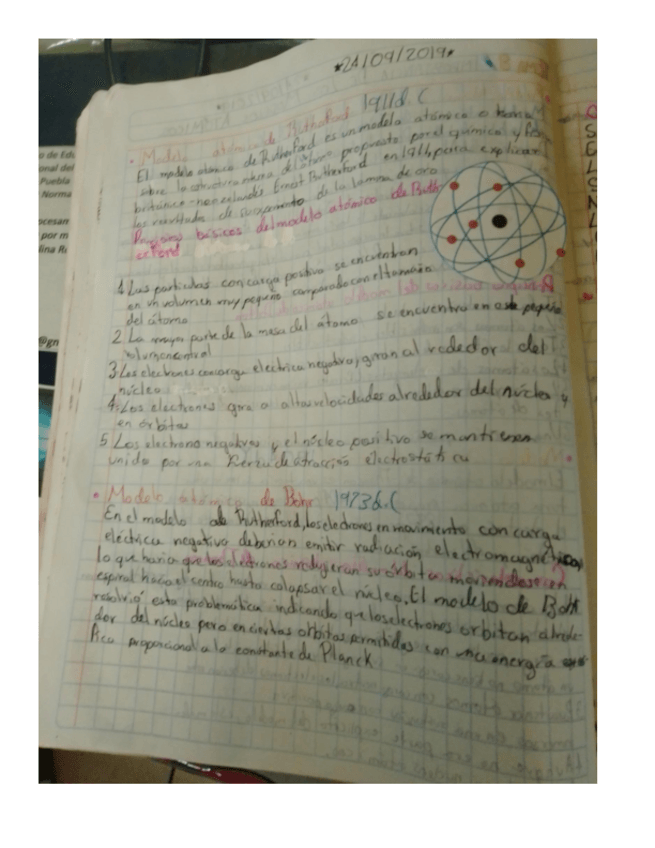 *24/09/2019*
• Modelo atómico de Rutherford 1911d.C
El modelo atómico de Rutherford es un modelo atómico o teoría
sobre la estructura interna del átomo propuesto por el químico y
británico-neozelandés Ernest Rutherford en 1911, para explicar
los resultados de su experimento de la lámina de oro
Principios básicos del modelo atómico de Ruth
erford
1. Las particulas con carga positiva se encuentran
en un volumen muy pequeño comparado con el tamaño
del átomo
2. La mayor parte de la masa del átomo se encuentra en ese pequeño
volumen central
3. Los electrones con carga electrica negativa, giran al rededor del
núcleo
4. Los electrones gira a altas velocidades alrededor del núcleo y
en órbitas
5. Los electrono negativos y el núcleo positivo se mantienen
unido por una fuerza de atracción electrostática
• Modelo atómico de Bohr 1923d.C
En el modelo de Rutherford, los electrones en movimiento con carga
eléctrica negativa deberian emitir radiación electromagnetica,
lo que haria que los electrones redujeran su órbita moviendose en
espiral hacia el centro hasta colapsar el núcleo. El modelo de Bohr
resolvió esta problemática indicando que los electrones orbitan alrede-
dor del núcleo pero en ciertas orbitas permitidas con una energía
fica proporcional a la constante de Planck
o de Edu
onal del
Puebla
Norma
ocesam
por m
lina Ri
@gn